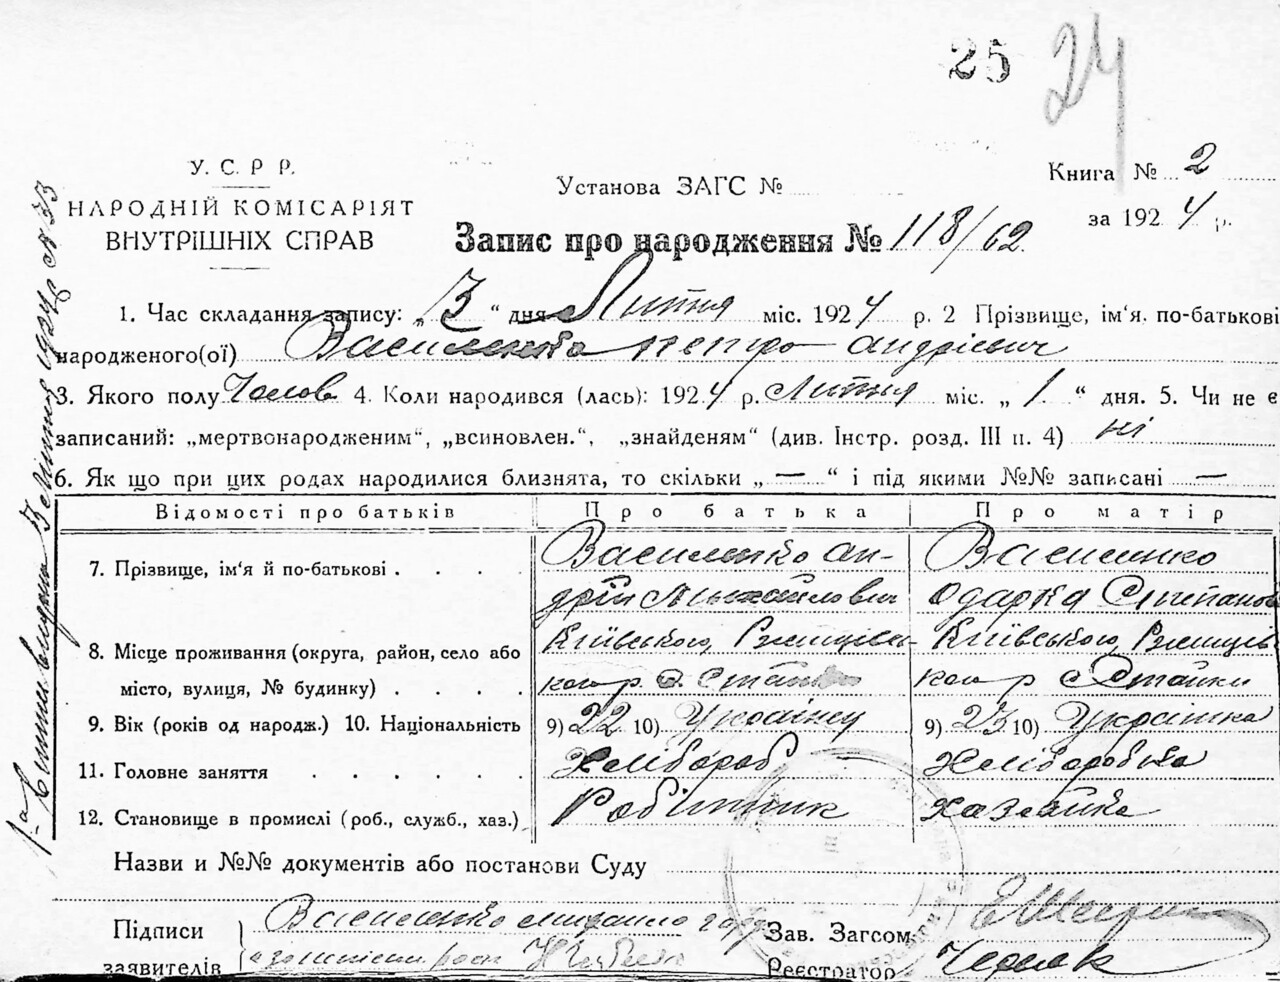 25 24
У. С. Р Р.
НАРОДНІЙ КОМІСАРІЯТ
ВНУТРІШНІХ СПРАВ
Установа ЗАГС №
Книга № 2
за 1924 р.
Запис про народження № 118/62
1. Час складання запису: „3“ дня Лютня міс. 1924 р. 2 Прізвище, ім'я, по-батькові
народженого(ої) Василенко Петро Андрієвич
3. Якого полу Чолов 4. Коли народився (лась): 1924 р. Лютня міс. „1“ дня. 5. Чи не є
записаний: „мертвонародженим“, „всиновлен.“, „знайденям“ (див. Інстр. розд. III п. 4) ні
6. Як що при цих родах народилися близнята, то скільки „—“ і під якими №№ записані —
Відомості про батьків Про батька Про матір
7. Прізвище, ім'я й по-батькові . . . . Василенко Ан- Василенко
дрій Михайлович Одарка Степанов
8. Місце проживання (округа, район, село або Київською, Ржищів- Київською, Ржищів
місто, вулиця, № будинку) . . . . кого р. с. Стайки кого р с Стайки
9. Вік (років од народж.) 10. Національність 9) 22 10) Українец 9) 23 10) Українка
11. Головне заняття . . . . . Хлібороб Хліборобка
12. Становище в промислі (роб., служб., хаз.) Робітник хазяйка
Назви и №№ документів або постанови Суду
Підписи Василенко Михайло
заявителів
Зав. Загсом
Реєстратор Черняк